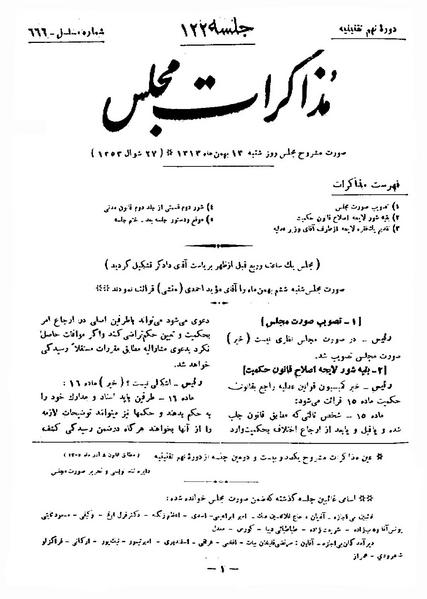 دورهٔ نهم تقنینیه
جلسه ۱۲۲
شماره مسلسل ۶۶۶
مذاکرات مجلس
صورت مشروح مجلس روز شنبه ۱۳ بهمن ماه ۱۳۱۳ * (۲۷ شوال ۱۳۵۳)
فهرست مذاکرات
۱) تصویب صورت مجلس
۲) بقیه شور لایحه اصلاح قانون حکمیت
۳) تقدیم یک فقره لایحه از طرف آقای وزیر عدلیه
۴) شور دوم قسمتی از جلد دوم قانون مدنی
۵) موقع و دستور جلسه بعد ـ ختم جلسه
(مجلس یک ساعت و ربع قبل از ظهر بریاست آقای دادگر تشکیل گردید)
صورت مجلس شنبه ششم بهمن ماه را آقای مؤید احمدی (منشی) قرائت نمودند **
[۱ ـ تصویب صورت مجلس]
رئیس ـ در صورت مجلس نظری نیست (خیر)
صورت مجلس تصویب شد.
[۲ ـ بقیه شور لایحه اصلاح قانون حکمیت]
رئیس ـ خبر کمیسیون قوانین عدلیه راجع بقانون
حکمیت ماده ۱۵ قرائت میشود:
ماده ۱۵ ـ شخص ثالثی که مطابق قانون جلب
شده و یا قبل و یا بعد از ارجاع اختلاف بحکمیت وارد
دعوی می‌شود میتواند باطرفین اصلی در ارجاع امر
بحکمیت و تعیین حکم تراضی کند واگر موافقت حاصل
نکرد بدعوی مشارالیه مطابق مقررات مستقلاً رسیدگی
خواهد شد.
رئیس ـ اشکالی نیست؛ (خیر) ماده ۱۶:
ماده ۱۶ ـ طرفین باید اسناد و مدارک خود را
به حکم بدهند و حکمها نیز میتوانند توضیحات لازمه
را از آنها بخواهند هرگاه درضمن رسیدگی کشف
* عین مذاکرات مشروح یکصد و بیست و دومین جلسه از دورهٔ نهم تقنینیه
(مطابق قانون ۸ آذر ماه ۱۳۰۵)
دایره تند نویسی و تحریر صورت مجلس
** اسامی غائبین جلسه گذشته که ضمن صورت مجلس خوانده شده:
۱